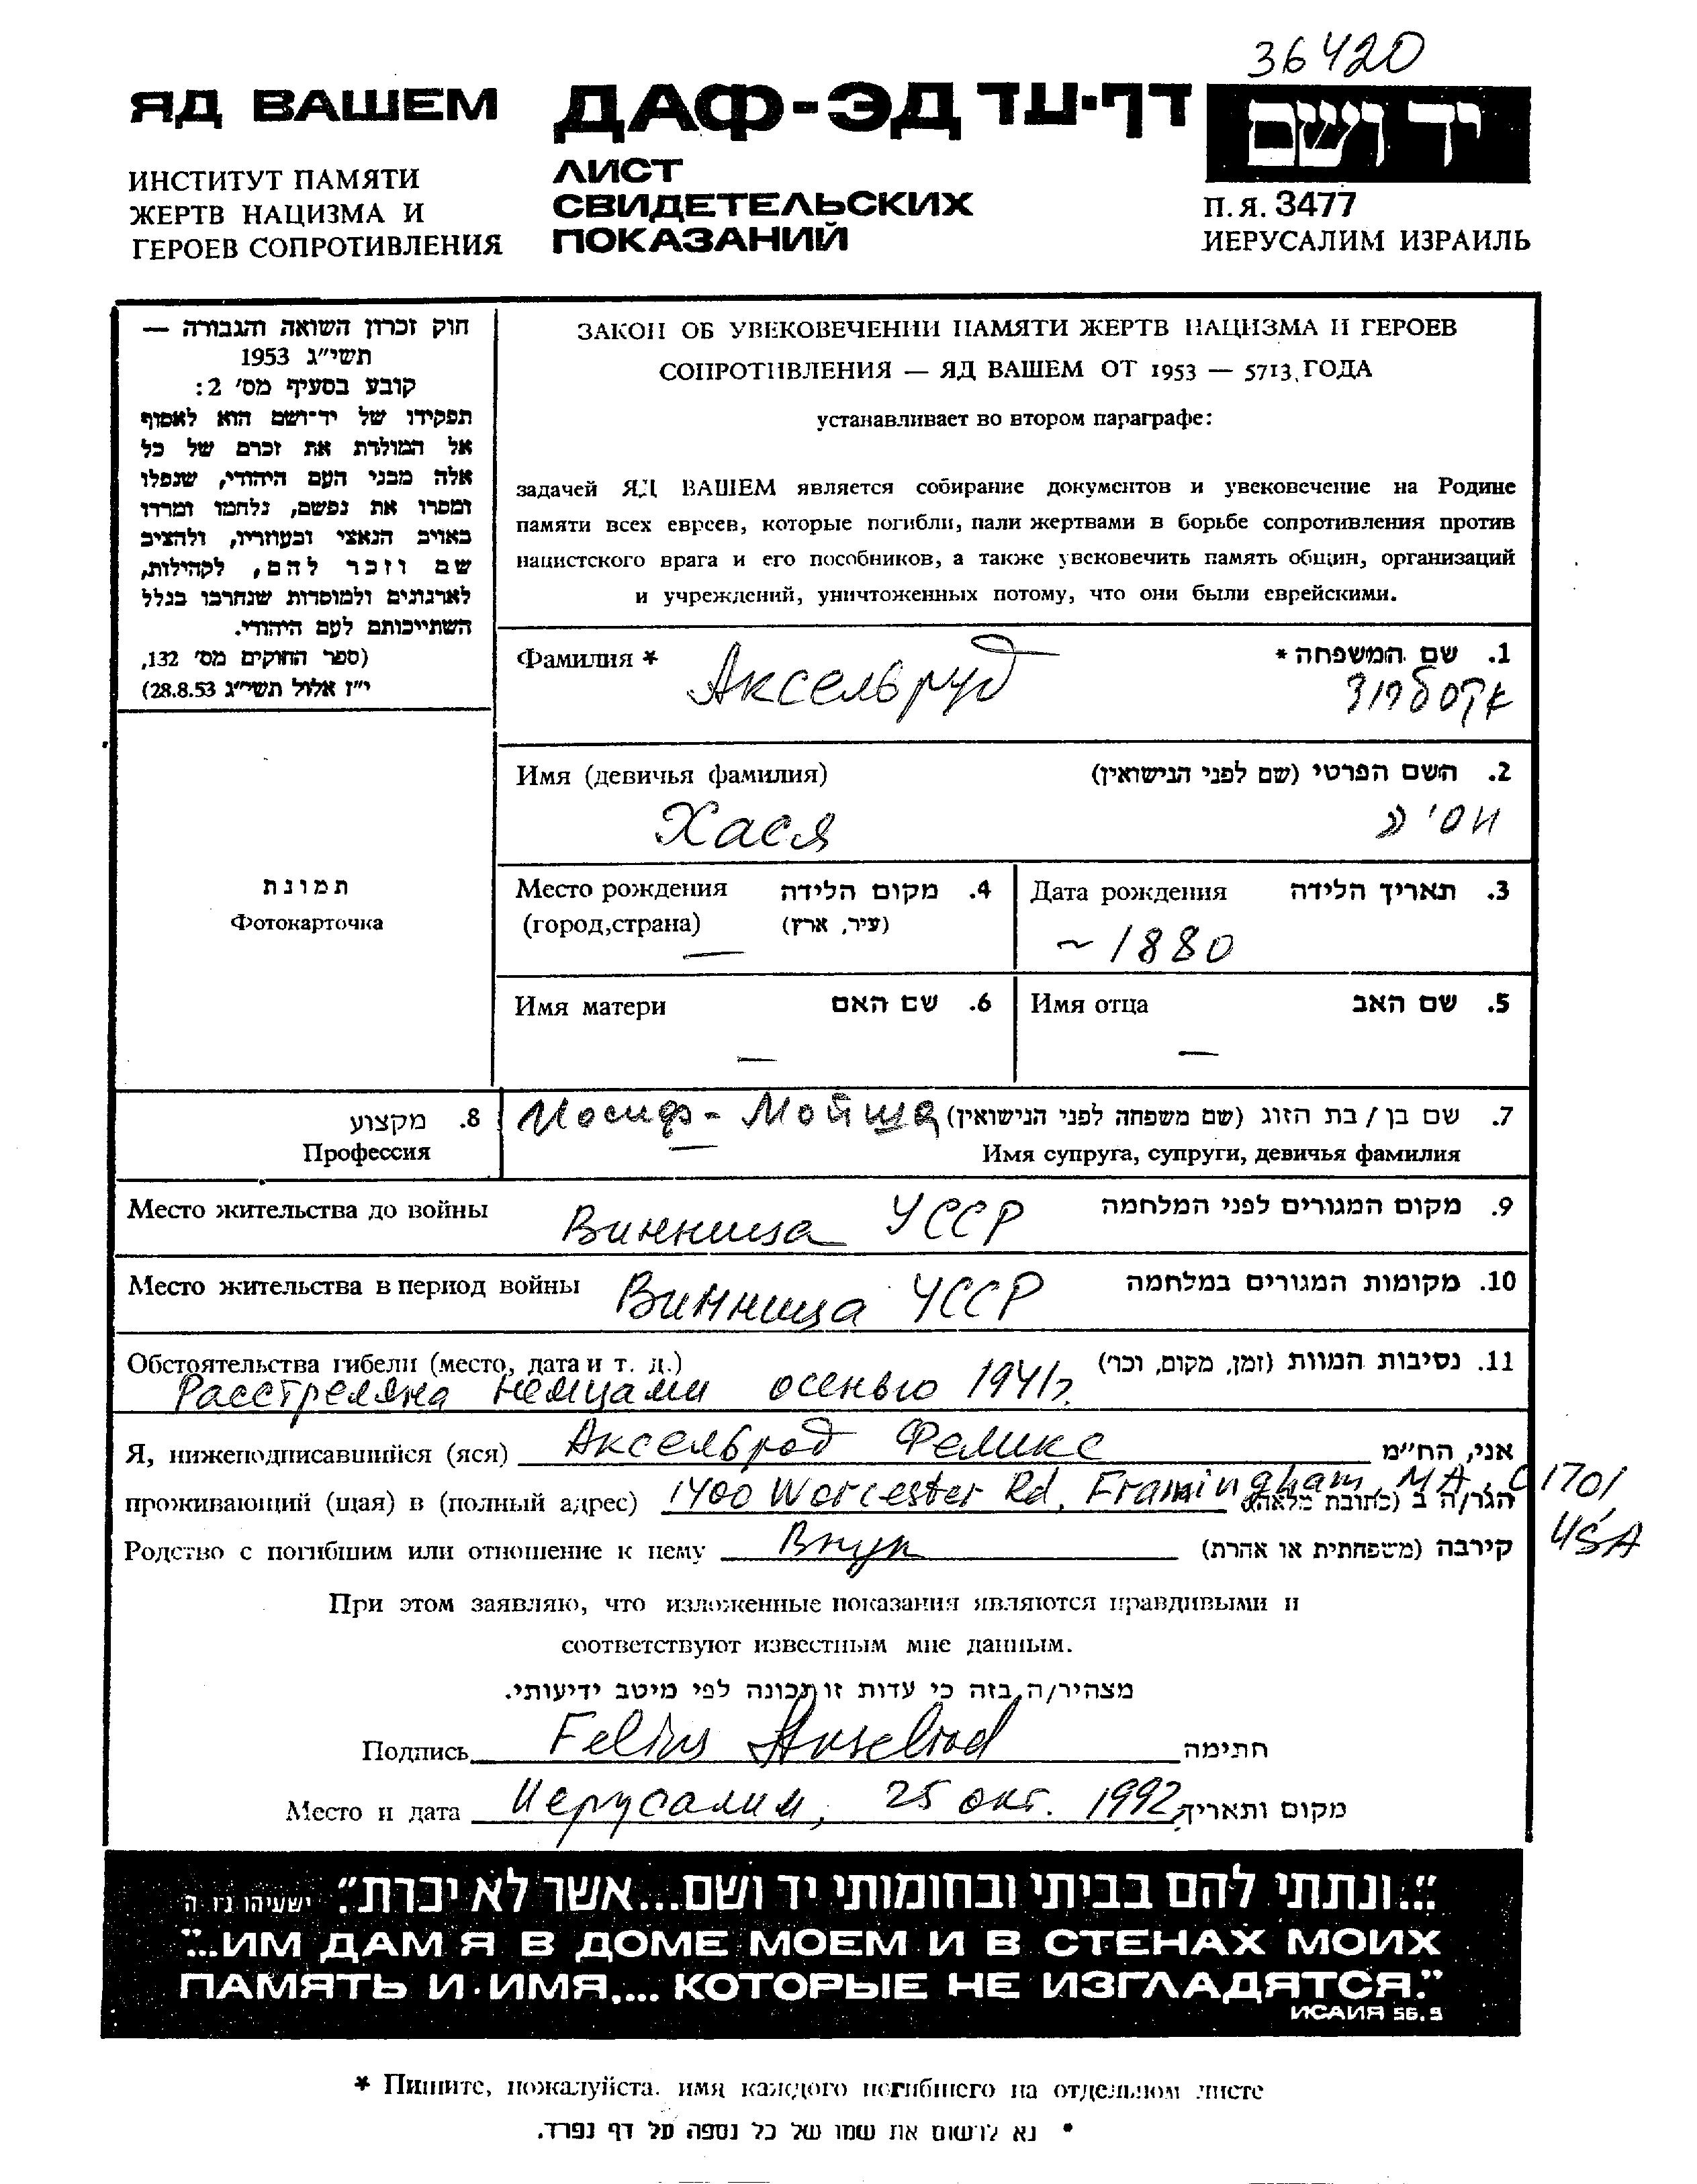 36420
ЯД ВАШЕМ
ДАФ-ЭД דף-עד
יד ושם
ИНСТИТУТ ПАМЯТИ
ЖЕРТВ НАЦИЗМА И
ГЕРОЕВ СОПРОТИВЛЕНИЯ
ЛИСТ
СВИДЕТЕЛЬСКИХ
ПОКАЗАНИЙ
П.Я. 3477
ИЕРУСАЛИМ ИЗРАИЛЬ
חוק זכרון השואה והגבורה —
תשי״ג 1953
קובע בסעיף מס׳ 2:
תפקידו של יד־ושם הוא לאסוף
אל המולדת את זכרם של כל
אלה מבני העם היהודי, שנפלו
ומסרו את נפשם, נלחמו ומרדו
באויב הנאצי ובעוזריו, ולהציב
שם וזכר להם, לקהילות,
לארגונים ולמוסדות שנחרבו בגלל
השתייכותם לעם היהודי.
(ספר החוקים מס׳ 132,
י״ז אלול תשי״ג 28.8.53)
ЗАКОН ОБ УВЕКОВЕЧЕНИИ ПАМЯТИ ЖЕРТВ НАЦИЗМА И ГЕРОЕВ
СОПРОТИВЛЕНИЯ — ЯД ВАШЕМ ОТ 1953 — 5713, ГОДА
устанавливает во втором параграфе:
задачей ЯД ВАШЕМ является собирание документов и увековечение на Родине
памяти всех евреев, которые погибли, пали жертвами в борьбе сопротивления против
нацистского врага и его пособников, а также увековечить память общин, организаций
и учреждений, уничтоженных потому, что они были еврейскими.
Фамилия * Аксельруд 1. שם המשפחה *
אקסלרוד
Имя (девичья фамилия) 2. השם הפרטי (שם לפני הנישואין)
Хася חסיה
Место рождения 4. מקום הלידה
(город,страна) (עיר, ארץ)
—
Дата рождения 3. תאריך הלידה
~ 1880
Имя матери 6. שם האם
—
Имя отца 5. שם האב
—
תמונת
Фотокарточка
8. מקצוע
Профессия
Иосиф - Мойша 7. שם בן / בת הזוג (שם משפחה לפני הנישואין)
— Имя супруга, супруги, девичья фамилия
Место жительства до войны Винница УССР 9. מקום המגורים לפני המלחמה
Место жительства в период войны Винница УССР 10. מקומות המגורים במלחמה
Обстоятельства гибели (место, дата и т. д.) 11. נסיבות המוות (זמן, מקום, וכר׳)
Расстреляна немцами осенью 1941г.
Я, нижеподписавшийся (яся) Аксельрод Феликс אני, הח״מ
проживающий (щая) в (полный адрес) 1400 Worcester Rd, Framingham, MA, 01701 הגר/ה ב (כתובת מלאה)
USA
Родство с погибшим или отношение к нему Внук קירבה (משפחתית או אחרת)
При этом заявляю, что изложенные показания являются правдивыми и
соответствуют известным мне данным.
מצהיר/ה בזה כי עדות זו נכונה לפי מיטב ידיעותי.
Подпись Felix Akselrod חתימה
Место и дата Иерусалим, 25 окт. 1992 מקום ותאריך
״...ונתתי להם בביתי ובחומותי יד ושם...אשר לא יכרת״. ישעיהו נ״ו ה
"...ИМ ДАМ Я В ДОМЕ МОЕМ И В СТЕНАХ МОИХ
ПАМЯТЬ И ИМЯ,... КОТОРЫЕ НЕ ИЗГЛАДЯТСЯ."
ИСАИЯ 56.5
* Пишите, пожалуйста. имя каждого погибшего на отдельном листе
* נא לרשום את שמו של כל נספה על דף נפרד.